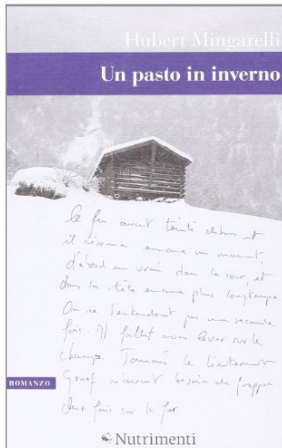 Hubert Mingarelli
Un pasto in inverno
le fer avait tinté dehors et
il résonna encore un moment,
d'abord en vrai dans la cour, et
dans la tête encore plus longtemps
On ne l'entendrait pas une seconde
fois. Il fallut nous lever sur le
champ. Jamais le lieutenant
Graaf n'avait besoin de frapper
deux fois sur le fer
ROMANZO
Nutrimenti